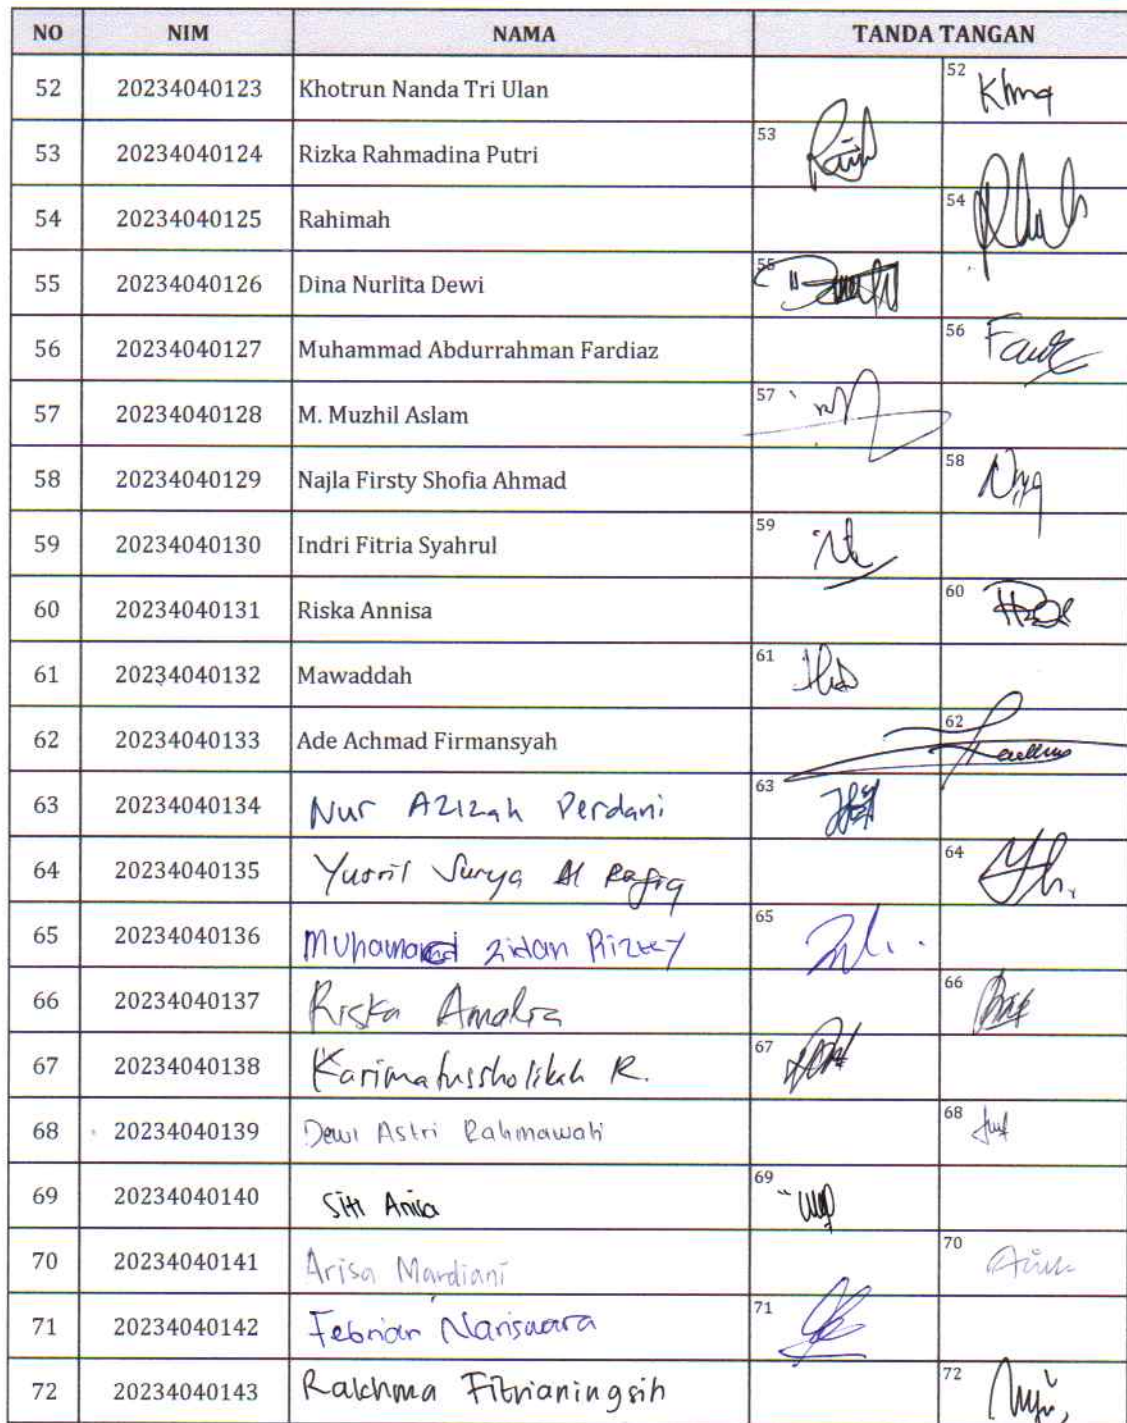 NO NIM NAMA TANDA TANGAN
52 20234040123 Khotrun Nanda Tri Ulan 52
53 20234040124 Rizka Rahmadina Putri 53
54 20234040125 Rahimah 54
55 20234040126 Dina Nurlita Dewi 55
56 20234040127 Muhammad Abdurrahman Fardiaz 56
57 20234040128 M. Muzhil Aslam 57
58 20234040129 Najla Firsty Shofia Ahmad 58
59 20234040130 Indri Fitria Syahrul 59
60 20234040131 Riska Annisa 60
61 20234040132 Mawaddah 61
62 20234040133 Ade Achmad Firmansyah 62
63 20234040134 Nur Azizah Perdani 63
64 20234040135 Yusril Surya Al Rafiq 64
65 20234040136 Muhamamad Zidan Rizky 65
66 20234040137 Riska Amalia 66
67 20234040138 Karimatussholikah R. 67
68 20234040139 Dewi Astri Rahmawati 68
69 20234040140 Siti Anisa 69
70 20234040141 Arisa Mardiani 70
71 20234040142 Febrian Nariswara 71
72 20234040143 Rakhma Fitrianingsih 72